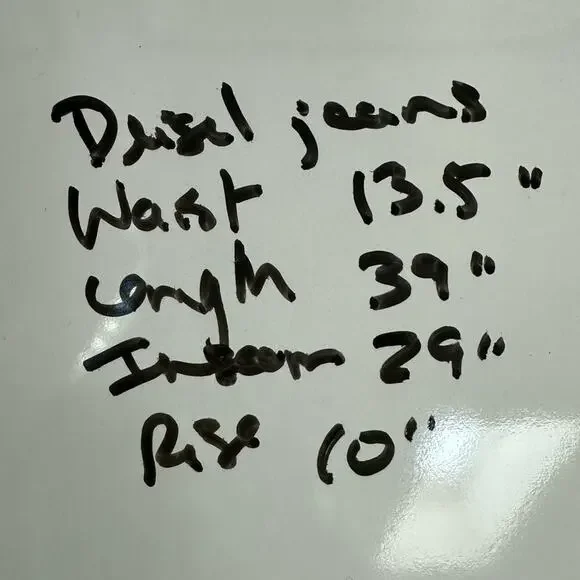 Diesel jeans
Waist 13.5"
Length 39"
Inseam 29"
Rise 10"